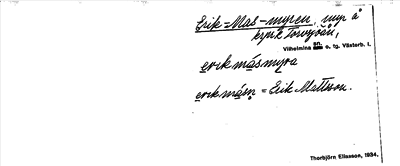 Erik=Mas-myren, myr å
kspt Torvsjön,
Vilhelmina sn. o. tg. Västerb. l.
erık másmyra
erık másn = Erik Matsson.
Thorbjörn Eliasson, 1934.